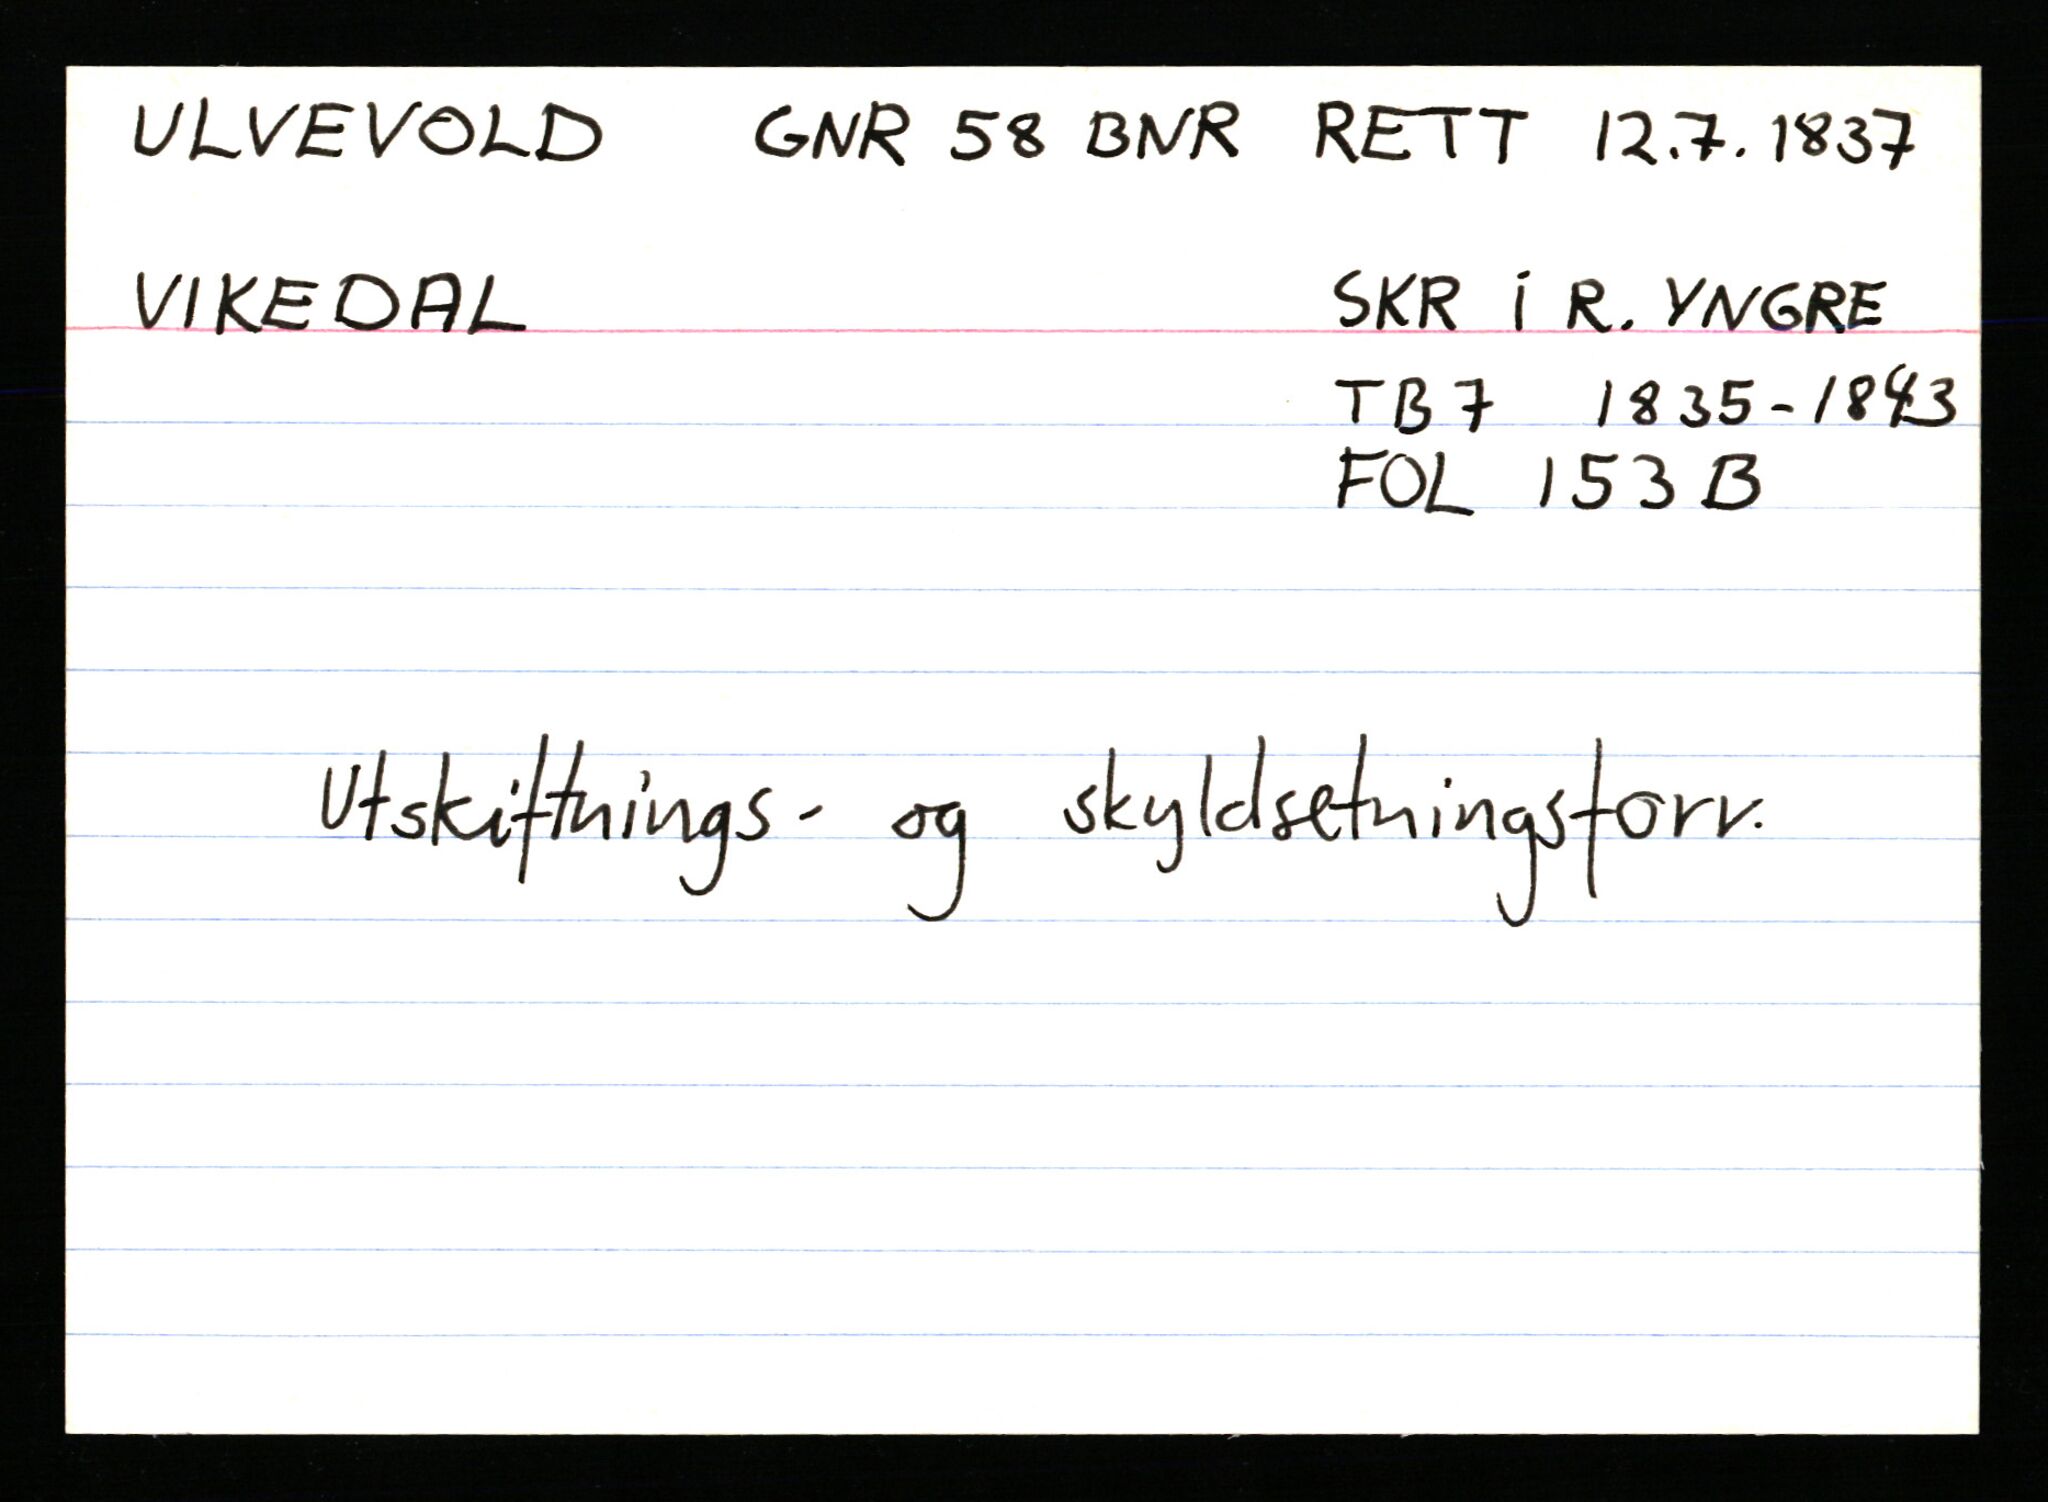 ULVEVOLD GNR 58 BNR RETT 12.7.1837
VIKEDAL SKR i R. YNGRE
TB 7 1835-1843
FOL 153 B
Utskiftnings- og skyldsetningsforr.